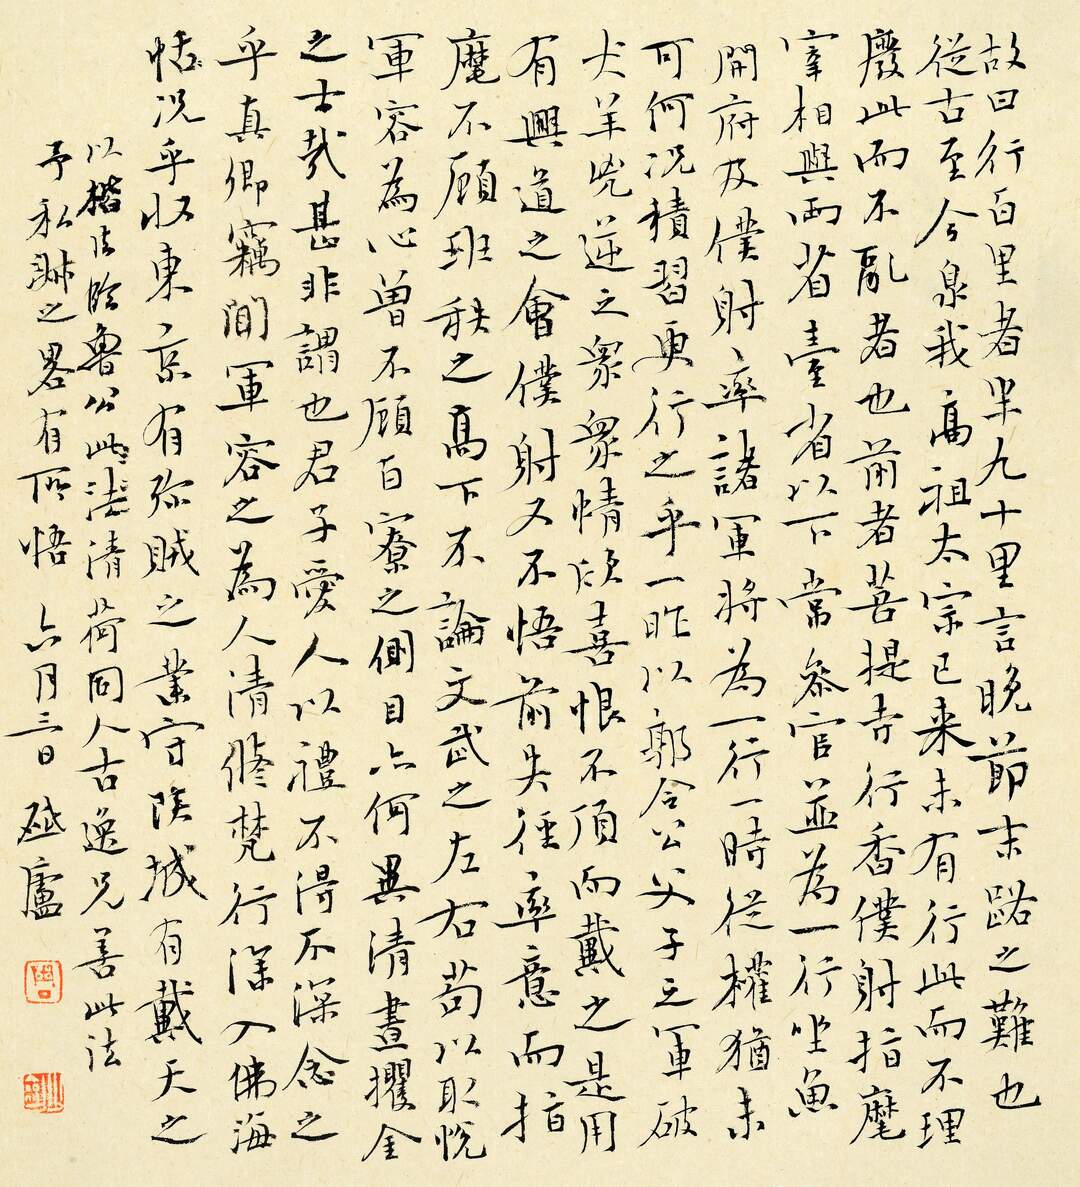 故曰行百里者半九十里言晚節末路之難也
從古至今泉我高祖太宗已来未有行此而不理
廢此而不亂者也前者菩提寺行香僕射指麾
宰相與兩省臺省以下常參官並為一行坐魚
開府及僕射率諸軍將為一行一時從權猶未
可何況積習更行之乎一昨以郭令公父子之軍破
犬羊兇逆之眾眾情欣喜恨不頂而戴之是用
有興道之會僕射又不悟前失徑率意而指
麾不顧班秩之高下不論文武之左右苟以取悅
軍容為心曾不顧百寮之側目亦何異清晝攫金
之士哉甚非謂也君子愛人以禮不得不深念之
乎真卿竊聞軍容之為人清修梵行深入佛海
恬況乎收東京有殄賊之業守陝城有戴天之
以楷法臨魯公此法清荷同人古逸兄善此法
予私淑之畧有所悟 六月三日 廬